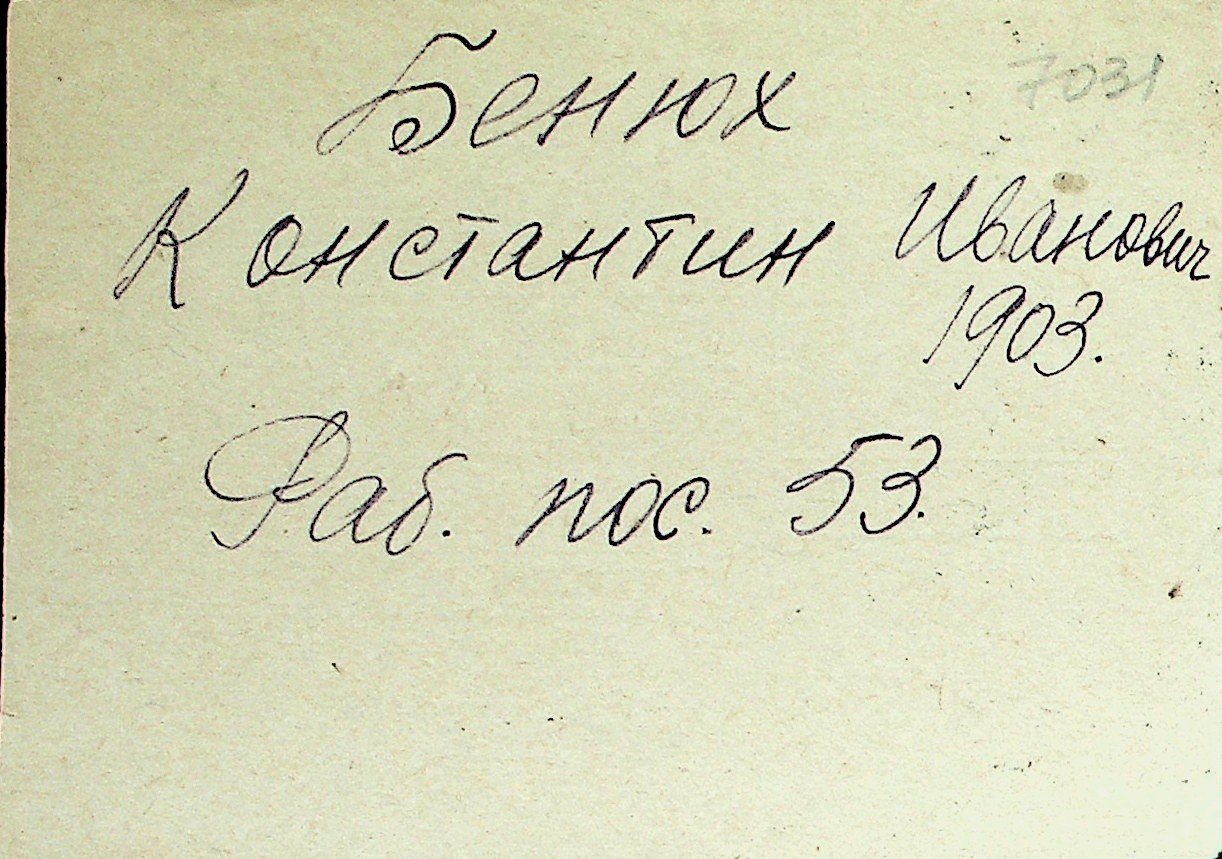 7031
Бенюх
Константин Иванович
1903.
Раб. пос. 53.